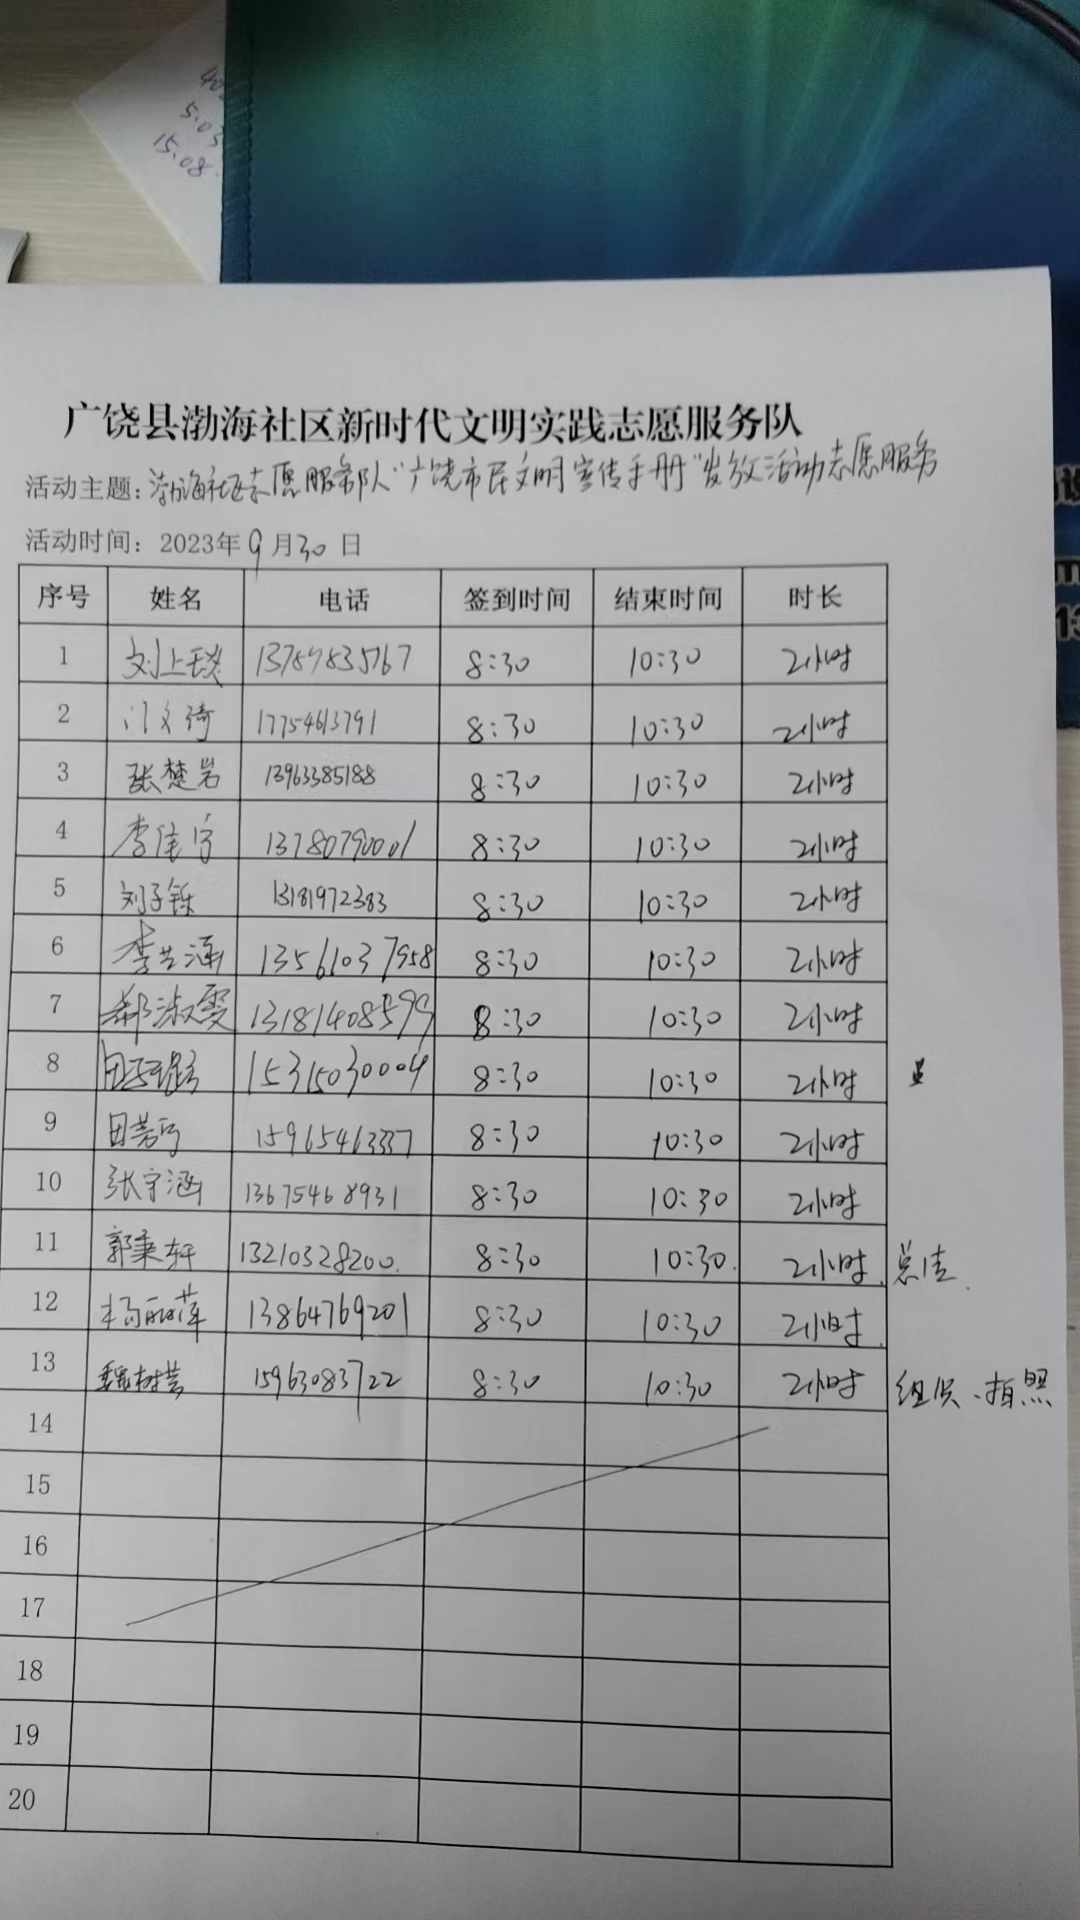 5.03
15.08
广饶县渤海社区新时代文明实践志愿服务队
活动主题：渤海社区志愿服务队“广饶市民文明宣传手册”发放活动志愿服务
活动时间：2023年9月30日
序号 姓名 电话 签到时间 结束时间 时长
1 刘上 8:30 10:30 2小时
2 门文琦 17754613791 8:30 10:30 2小时
3 张楚岩 13963385188 8:30 10:30 2小时
4 李佳 13780790001 8:30 10:30 2小时
5 刘子铄 13181972383 8:30 10:30 2小时
6 李芸涵 13561037958 8:30 10:30 2小时
7 郝淑雯 13181408599 8:30 10:30 2小时
8 田 15315030004 8:30 10:30 2小时
9 田 15965463337 8:30 10:30 2小时
10 张宇涵 13675468931 8:30 10:30 2小时
11 郭秉轩 13210328200. 8:30 10:30. 2小时. 总结.
12 杨丽萍 13864769201 8:30 10:30 2小时.
13 魏树芸 15963083722 8:30 10:30 2小时 组织、拍照
14
15
16
17
18
19
20